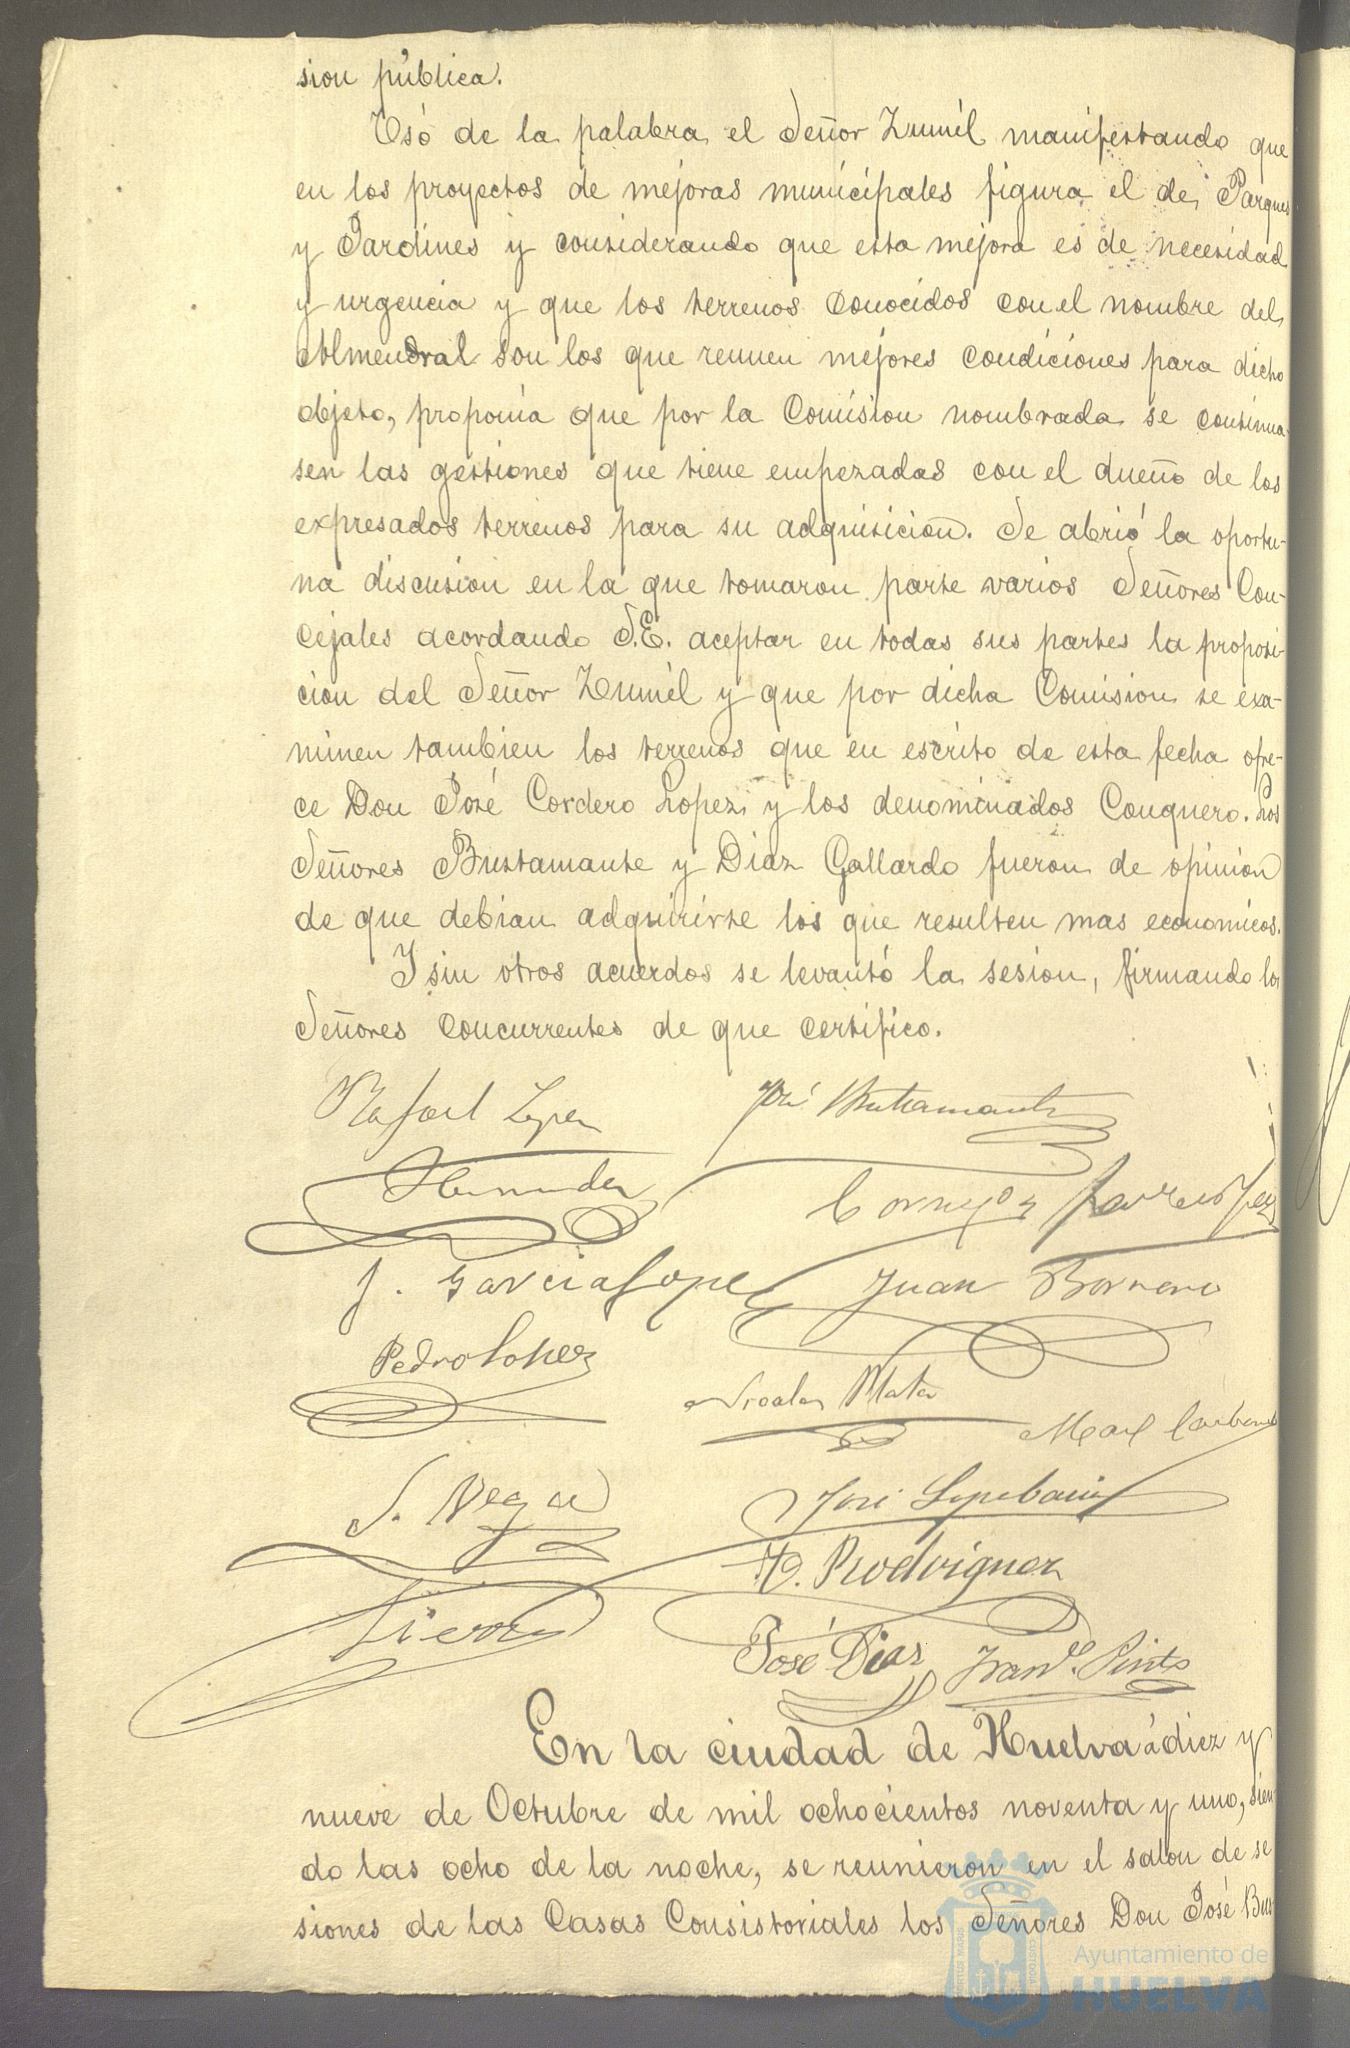 sion pública.
Usó de la palabra el Señor Zumél manifestando que
en los proyectos de mejoras municipales figura el de Parques
y Jardines y considerando que esta mejora es de necesidad
y urgencia y que los terrenos conocidos con el nombre del
Almendral son los que reunen mejores condiciones para dicho
objeto, proponia que por la Comision nombrada se continua-
sen las gestiones que tiene empezadas con el dueño de los
expresados terrenos para su adquisicion. Se abrió la oportu-
na discusion en la que tomaron parte varios Señores Con-
cejales acordando S.E. aceptar en todas sus partes la proposi-
cion del Señor Zumél y que por dicha Comision se exa-
minen tambien los terrenos que en escrito de esta fecha ofre-
ce Don José Cordero Lopez y los denominados Conquero. Los
Señores Bustamante y Diaz Gallardo fueron de opinion
de que debian adquirirse los que resulten mas economicos.
Y sin otros acuerdos se levantó la sesion, firmando los
Señores concurrentes de que certifico.
Rafael Lopez José Bustamante
Hernandez
J. Garcia Lopez Juan Borrero
Pedro Lopez Nicolas Mata
S. Vega José
H. Rodriguez
José Diaz Franco. Pinto
En la ciudad de Huelva á diez y
nueve de Octubre de mil ochocientos noventa y uno, sien
do las ocho de la noche, se reunieron en el salon de se
siones de las Casas Consistoriales los Señores Don José Bus
Ayuntamiento de
HUELVA